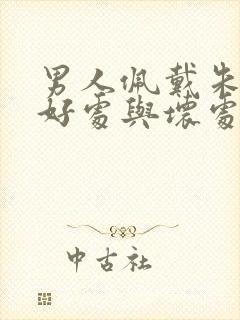 男人佩戴朱
好處與壞處
中古社